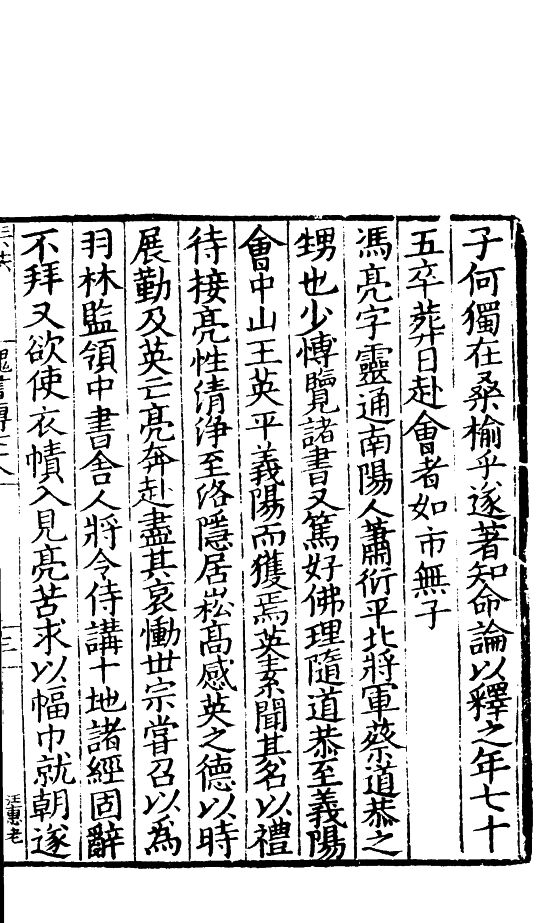 子何獨在桑榆乎遂著知命論以釋之年七十
五卒葬日赴會者如市無子
馮亮字靈通南陽人蕭衍平北將軍蔡道恭之
甥也少愽覽諸書又篤好佛理隨道恭至義陽
會中山王英平義陽而獲焉英素聞其名以禮
待接亮性清淨至洛隱居崧高感英之德以時
展勤及英亡亮奔赴盡其哀慟世宗嘗召以爲
羽林監領中書舍人將令侍講十地諸經固辭
不拜又欲使衣幘入見亮苦求以幅巾就朝遂
魏書傳七八
三
汪惠老